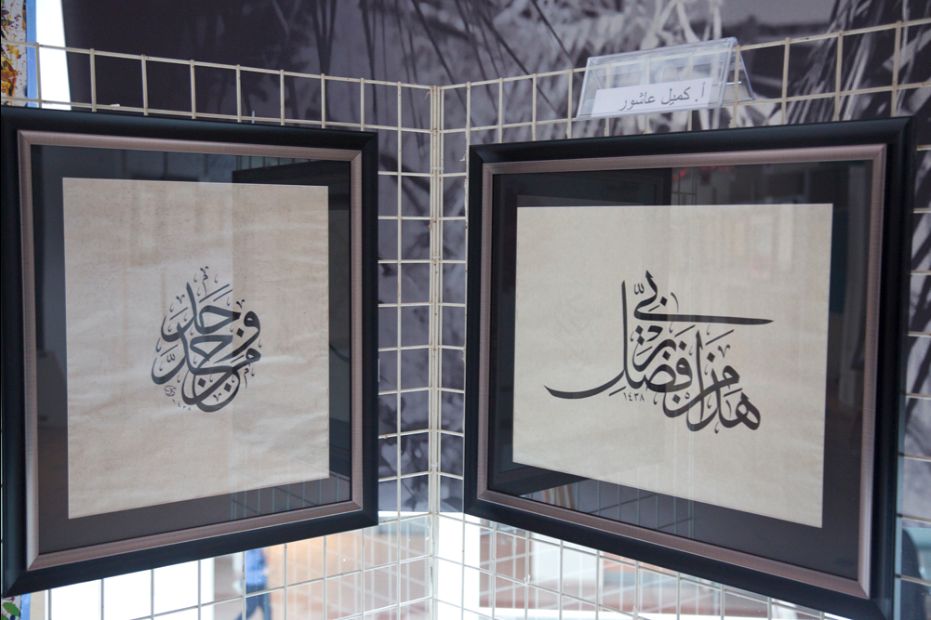 أ. كميل عاشور
هذا من فضل ربي
١٤٣٨
من جد وجد